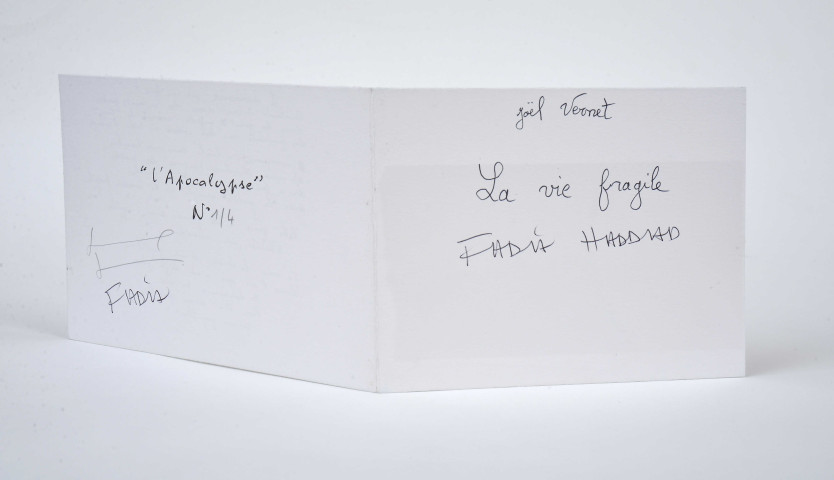 "l'Apocalypse"
N°1/4
FADIA
Joël Vernet
La vie fragile
FADIA HADDAD